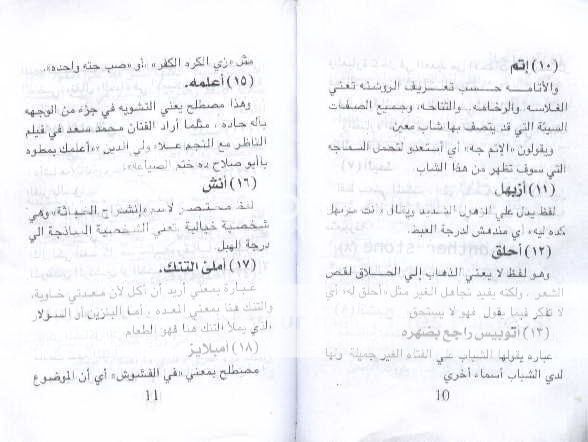 (١٠) إتم
والأتامـــه حـــسب تعـــريف الروشنه تعني
الغلاسه. والرخامه.. والتناحه، وجميع الصفات
السيئة التي قد يتصف بها شاب معين.
ويقولون «الإتم جه» أي أستعدو لتحمل السماجه
التي سوف تظهر من هذا الشاب.
(١١) أزبهل.
لفظ يدل علي الزهول الشديد ويقال «أنت مزبهل
كده ليه» أي مندهش لدرجة العبط.
(١٢) أحلق
وهو لفظ لا يعني الذهاب إلي الحـــلاق لقص
الشعر.. ولكنه يفيد تجاهل الغير مثل «أحلق له» أي
لا تفكر فيما يقول فهو لا يستحق
(١٣) أتوبيس راجع بضهره
عباره يقولها الشباب علي الفتاه الغير جميلة ولها
لدي الشباب أسماء أخري
10
مثل «زي الكره الكفر» «أو «صب جته واحده».
(١٥) أعلمه.
وهذا مصطلح يعني التشويه في جزء من الوجهه
بآله حاده، مثلما أراد الفنان محمد سعد في فيلم
الناظر مع النجم عـلاء ولي الدين «أعلمك بمطوه
ياأبو صلاح ده ختم الصياعه».
(١٦) أنش
لفظ مختصر لاسم «إنشراح
شخصية خيالية يعني الشخصية الساذجة إلي
درجة الهبل.
(١٧) أملئ التنك.
عبـارة بمعني أريد أن آكل لأن معدتي خاوية،
والتنك هنا بمعني المعده. أما البنزين أو السولار
الذي يملأ التنك هنا فهو الطعام
(١٨) امبلايز
مصطلح بمعني «في الفشوش» أي أن الموضوع
11